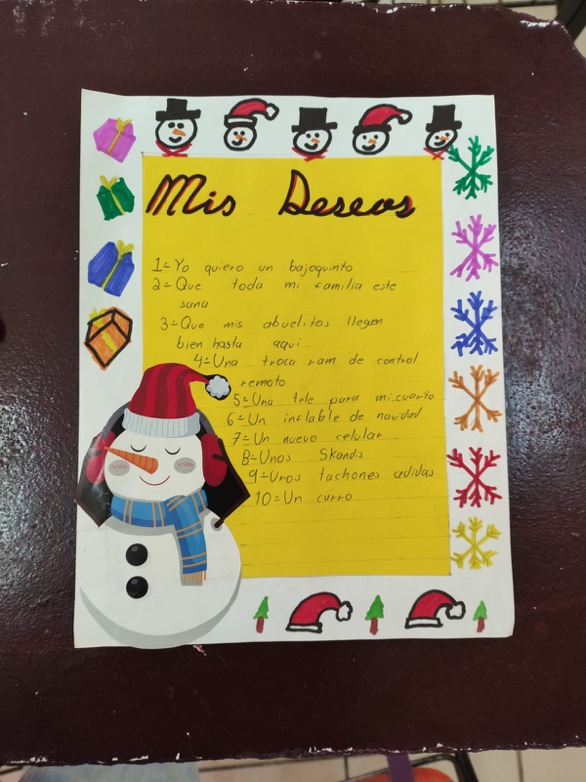 Mis Deseos
1÷Yo quiero un bajoquinto
2÷Que toda mi familia este
sana
3÷Que mis abuelitos llegen
bien hasta aqui
4÷Una troca ram de control
remoto
5÷Una tele para mi cuarto
6÷Un inflable de navidad
7÷Un nuevo celular
8÷Unos Skands
9÷Unos tachones adidas
10÷Un carro